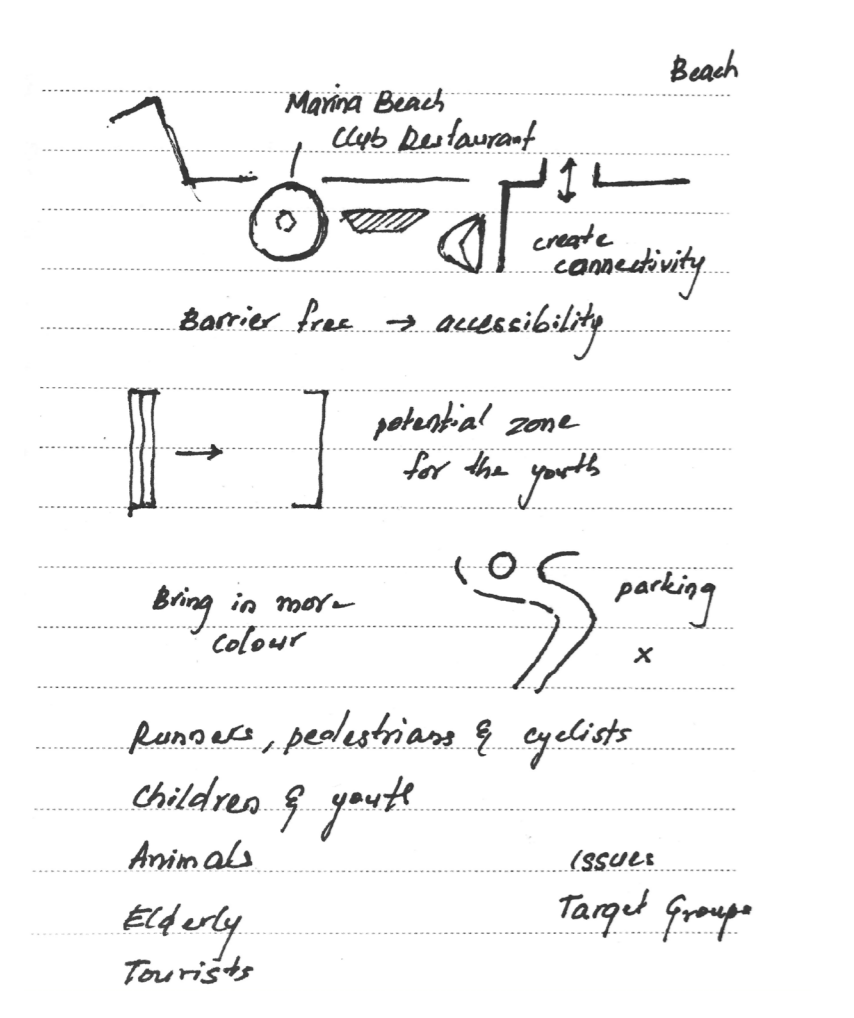 Beach
Marina Beach
Club Restaurant
create
connectivity
Barrier free → accessibility
potential zone
for the youth
Bring in more
colour
parking
x
Runners, pedestrians & cyclists
Children & youth
Animals
Issues
Target Groups
Elderly
Tourists